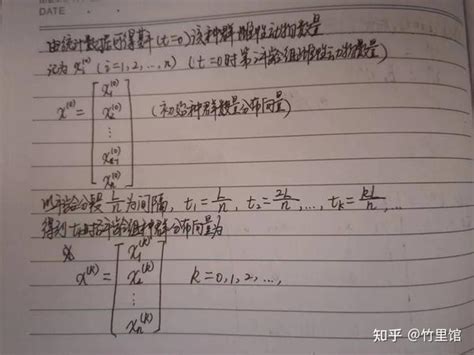 DATE
由统计数据可得某年(t=0)该种群雌性动物数量
记为 x_i^{(0)} (i=1,2,…,n) (t=0时第i年龄组雌性动物数量)
x^{(0)} = [x_1^{(0)} x_2^{(0)} ⋮ x_{n-1}^{(0)} x_n^{(0)}] (初始种群数量分布向量)
以年龄分段 L/n 为间隔, t_1=L/n, t_2=2L/n, …, t_k=kL/n,
得到 t_k时各年龄组种群分布向量为
x^{(k)} = [x_1^{(k)} x_2^{(k)} ⋮ x_n^{(k)}] k=0,1,2,…,
知乎 @竹里馆